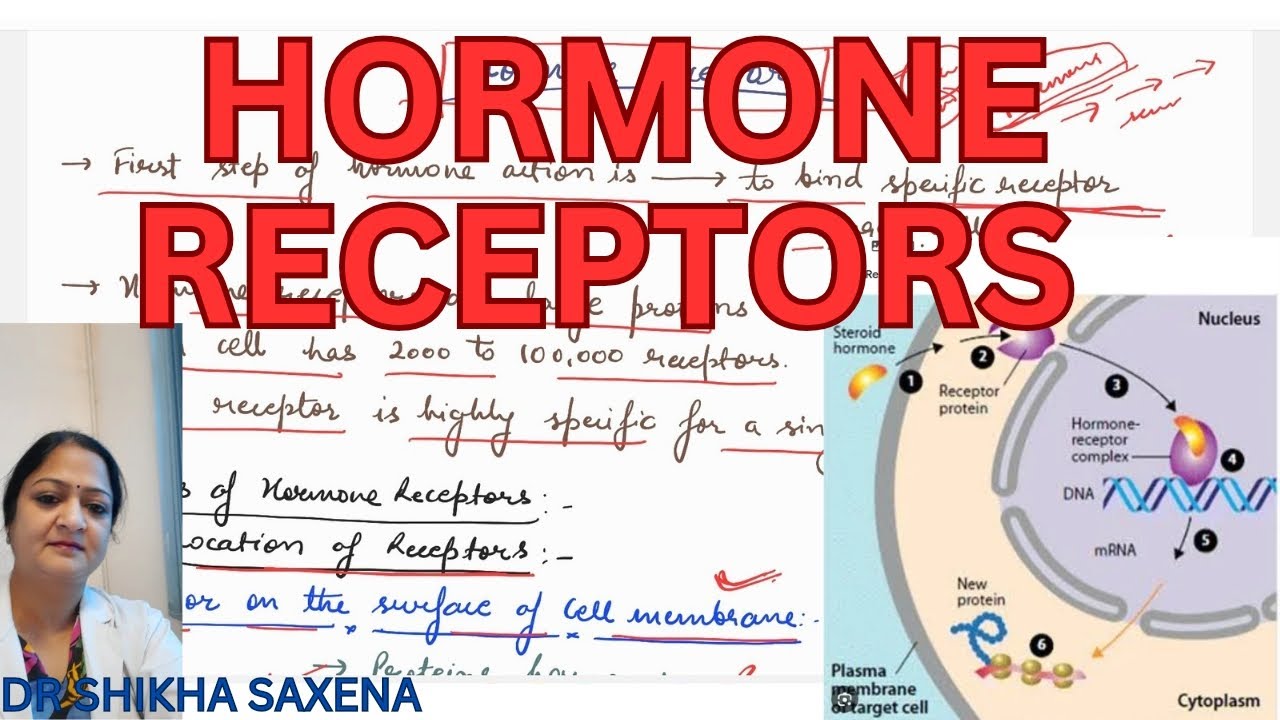 HORMONE
RECEPTORS
→ First step of hormone action is → to bind specific receptor
→ large proteins
cell has 2000 to 100,000 receptors.
receptor is highly specific for a sin
of Hormone Receptors:-
ocation of Receptors:-
or on the surface of cell membrane:-
→ Proteine
DR SHIKHA SAXENA
Steroid
hormone
1
2
Receptor
protein
3
Nucleus
Hormone-
receptor
complex
4
DNA
5
mRNA
New
protein
6
Plasma
membrane
of target cell
Cytoplasm